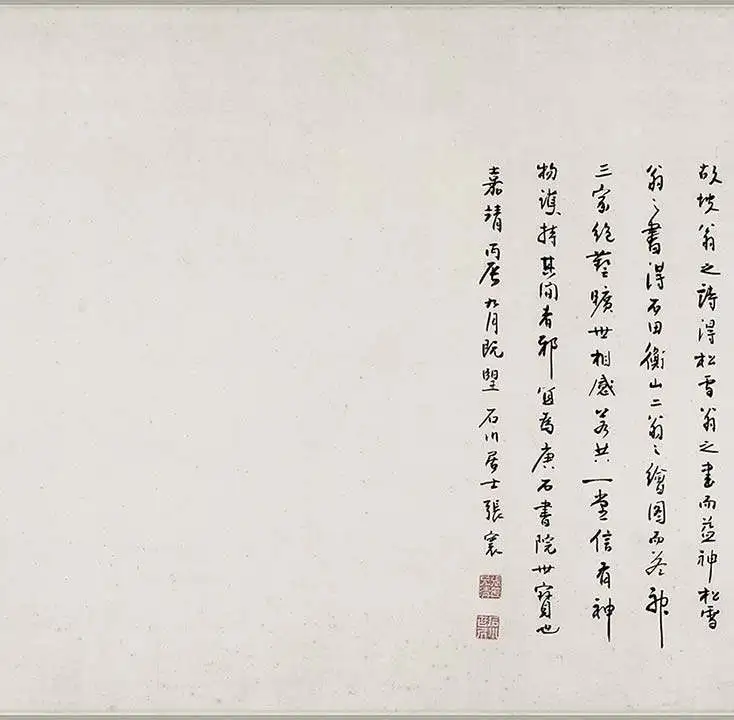 故坡翁之詩得松雪翁之書而益神松雪
翁〻書得石田衡山二翁〻繪圖而益神
三家絶藝曠世相感若共一堂信有神
物護持其間者邪宜為石書院世寶也
嘉靖丙辰九月既望石川居士張寰